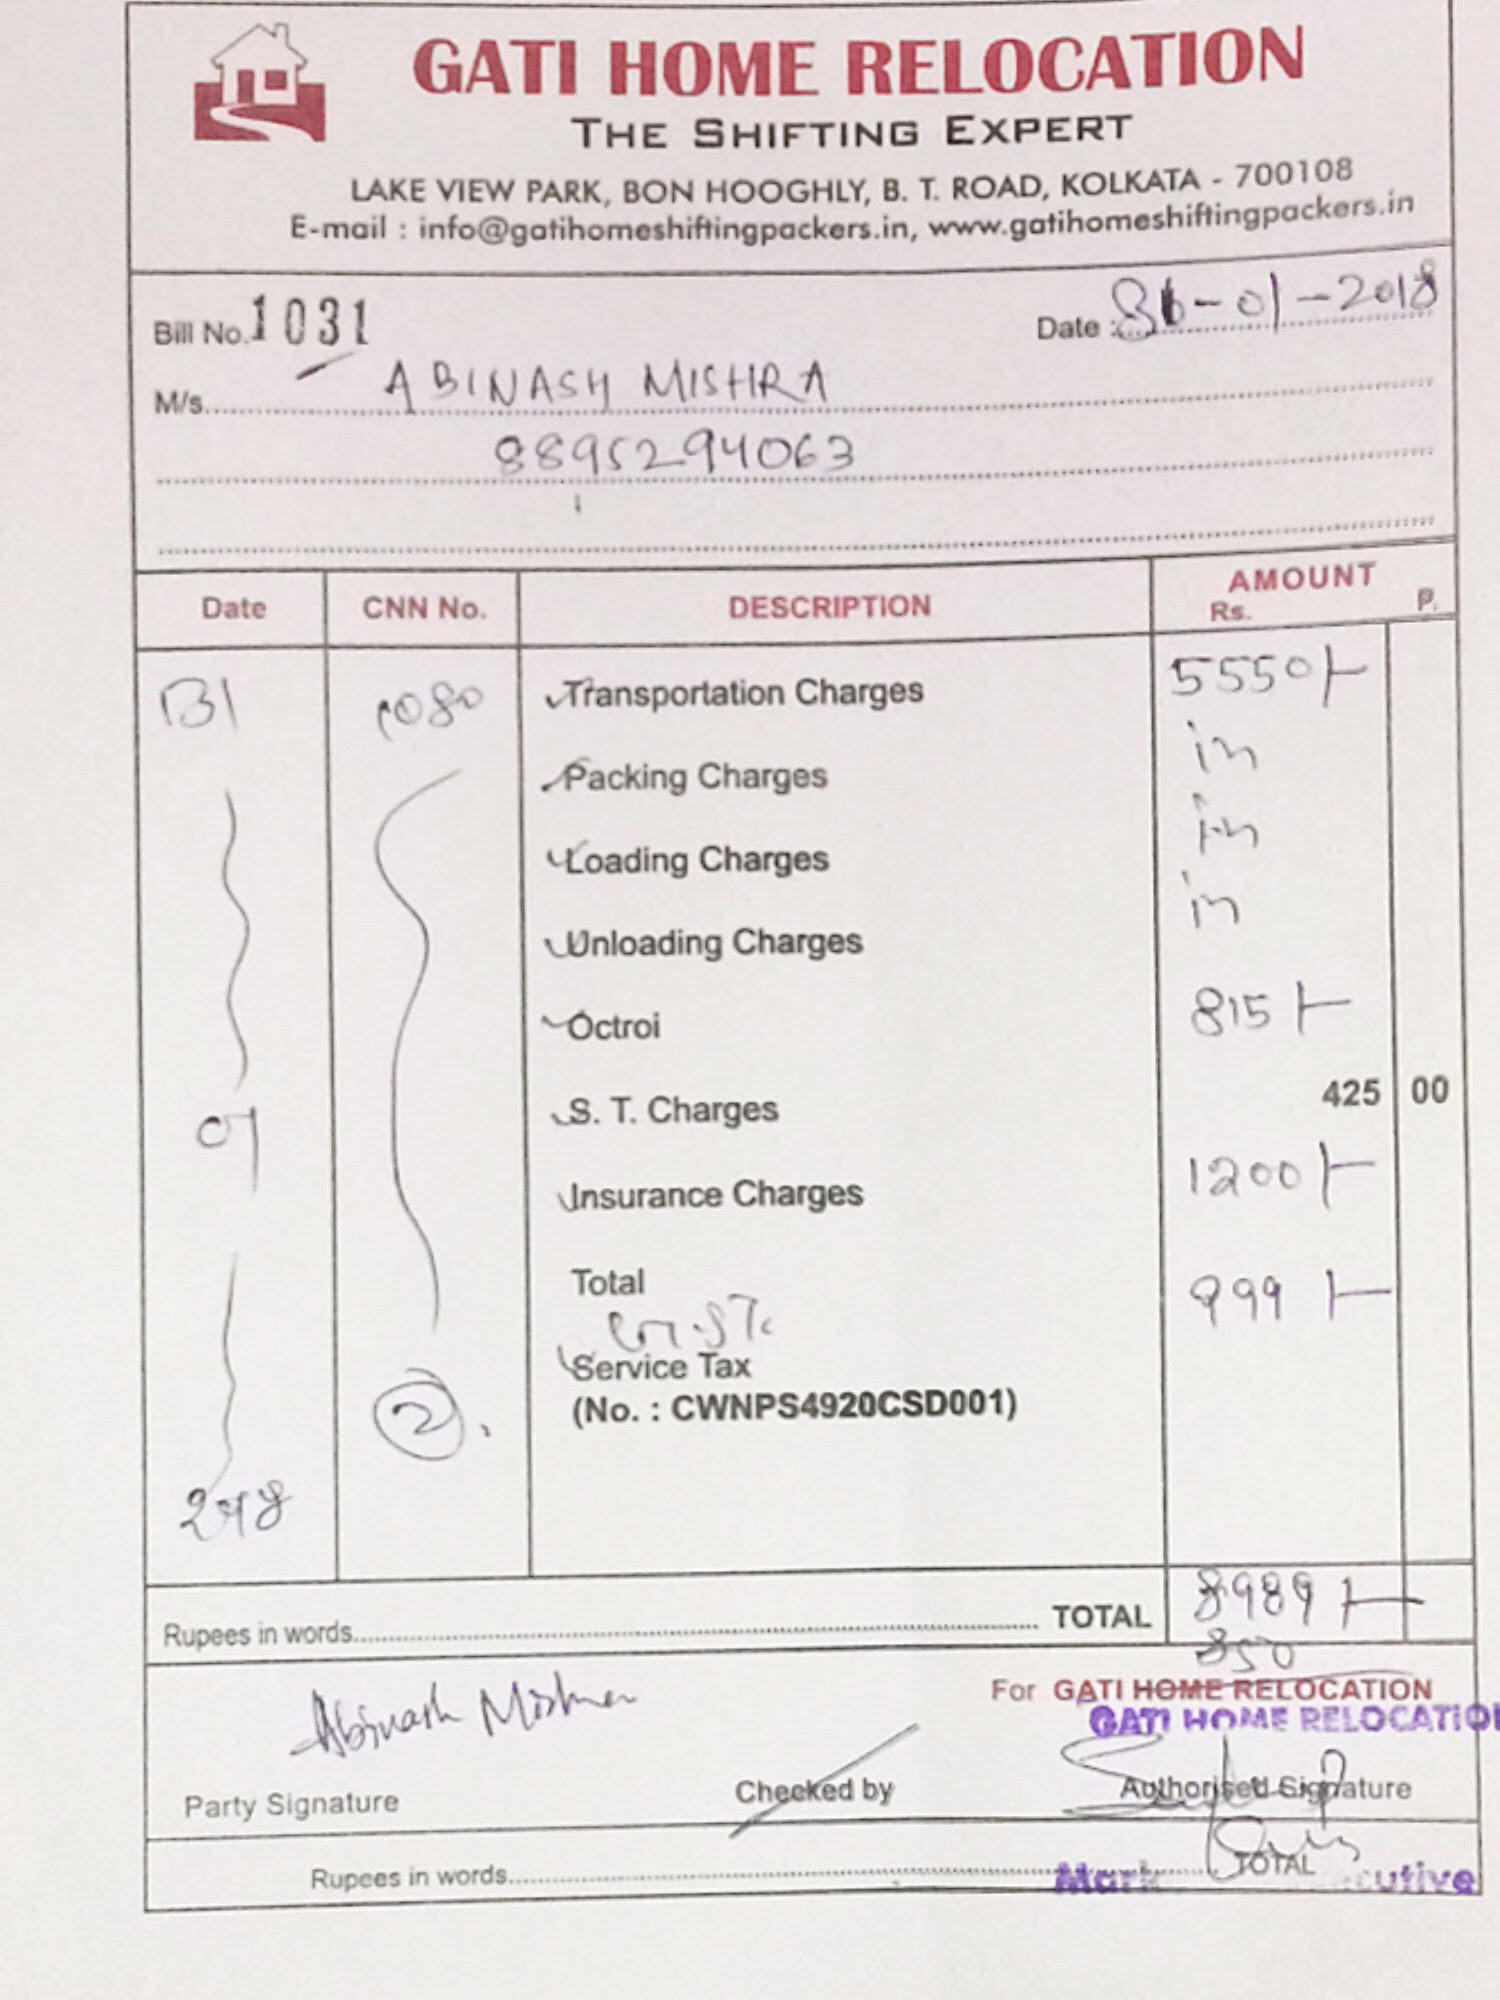 GATI HOME RELOCATION
THE SHIFTING EXPERT
LAKE VIEW PARK, BON HOOGHLY, B. T. ROAD, KOLKATA - 700108
E-mail : info@gatihomeshiftingpackers.in, www.gatihomeshiftingpackers.in
Bill No. 1031 Date : -01-2018
M/s. ABINASH MISHRA
8895294063
Date CNN No. DESCRIPTION AMOUNT
Rs. P.
1080 Transportation Charges 5550/-
Packing Charges in
Loading Charges in
Unloading Charges in
Octroi 815/-
S. T. Charges 425 00
Insurance Charges 1200/-
Total 999/-
Service Tax
(No. : CWNPS4920CSD001)
2
Rupees in words TOTAL 8989/-
850
For GATI HOME RELOCATION
GATI HOME RELOCATIO
Abinash Mishra
Party Signature Checked by Authorised Signature
Rupees in words TOTAL